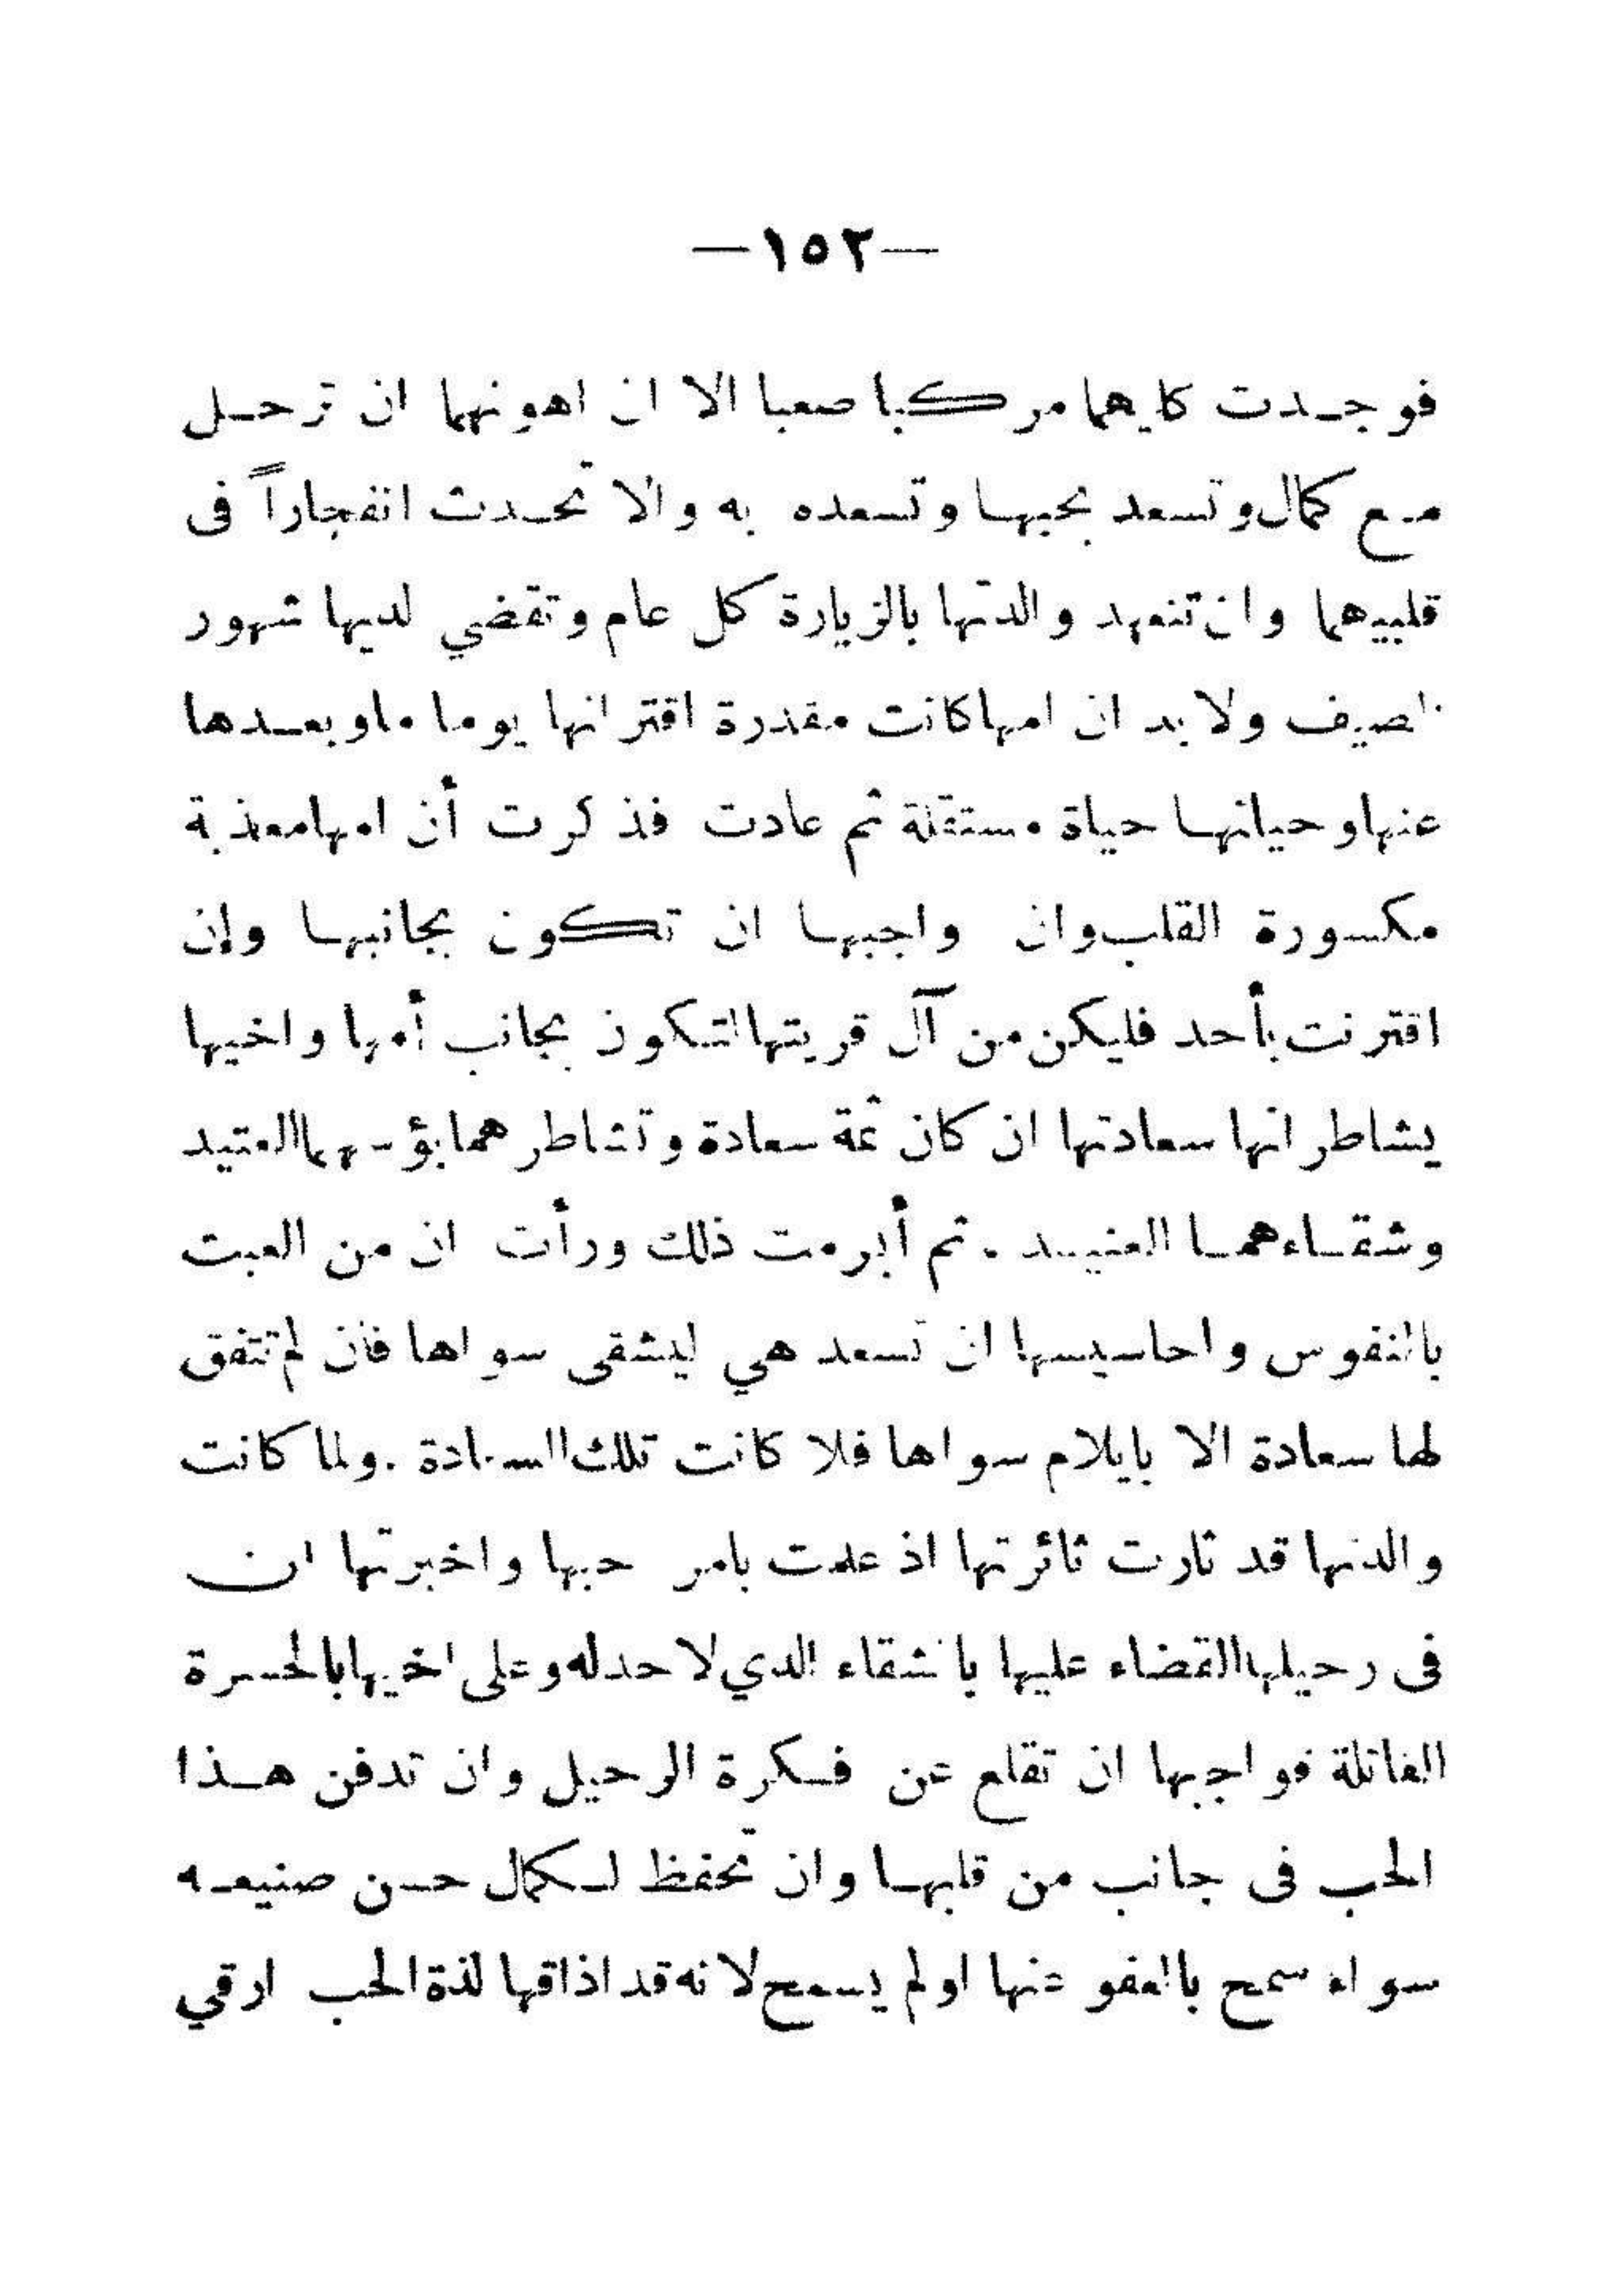 —١٥٢—
فوجدت كليهما مركبا صعبا الا ان اهونهما ان ترحل
مع كمال وتسعد بحبها وتسعده به والا تحدث انفجاراً في
قلبيهما وان تتعهد والدتها بالزيارة كل عام وتقضي لديها شهور
الصيف ولا بد ان امها كانت مقدرة اقترانها يوما ما وبعدها
عنها وحياتها حياة مستقلة ثم عادت فذكرت أن امها معذبة
مكسورة القلب وان واجبها ان تكون بجانبها وإن
اقترنت بأحد فليكن من آل قريتها لتكون بجانب أمها واخيها
يشاطرانها سعادتها ان كان ثمة سعادة وتشاطرهما بؤسهما العتيد
وشقاءهما العنيد . ثم أبرمت ذلك ورأت ان من العبث
بالنفوس واحاسيسها ان تسعد هي ليشقى سواها فان لم تتفق
لها سعادة الا بايلام سواها فلا كانت تلك السعادة . ولما كانت
والدتها قد ثارت ثائرتها اذ علمت بامر حبها واخبرتها ان
في رحيلها القضاء عليها بالشقاء الذي لا حد له وعلى اخيها بالحسرة
القاتلة فواجبها ان تقلع عن فكرة الرحيل وان تدفن هذا
الحب في جانب من قلبها وان تحفظ لكمال حسن صنيعه
سواء سمح بالعفو عنها او لم يسمح لانه قد اذاقها لذة الحب ارقي